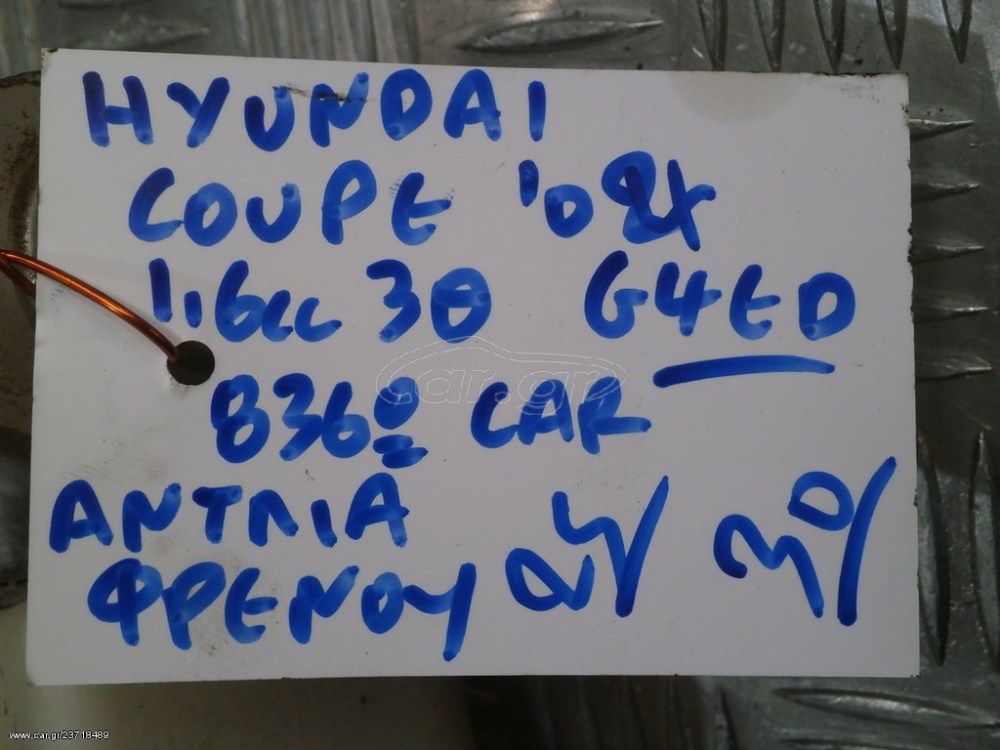 HYUNDAI
COUPE '02X
1,6cc 3θ G4ED
8360 CAR
ΑΝΤΛΙΑ
ΦΡΕΝΟΥ
car.gr
www.car.gr/23718489